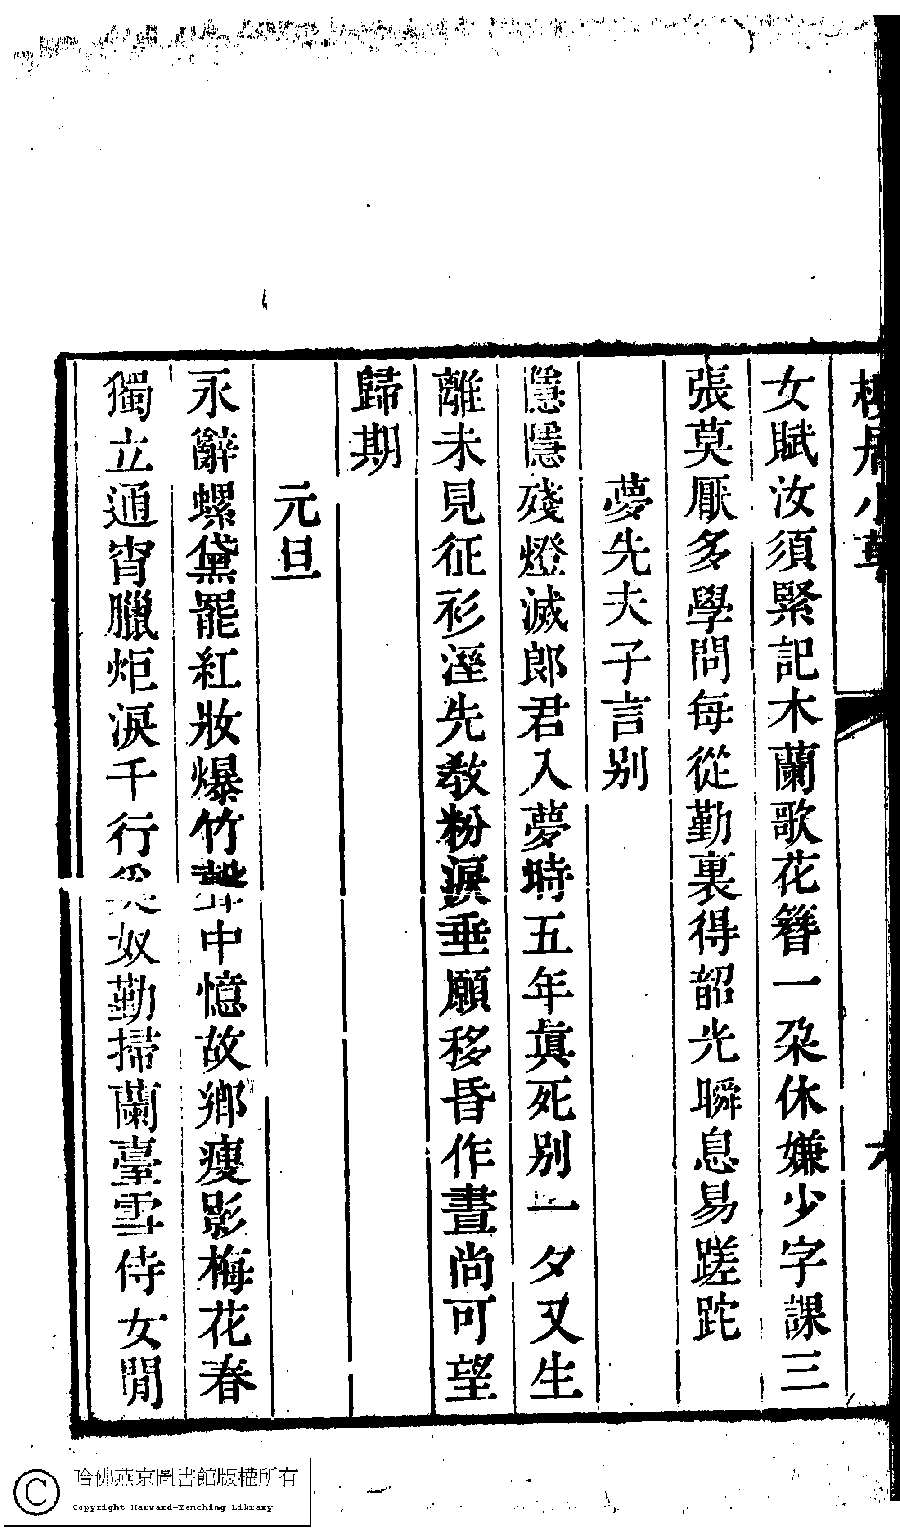 女賦汝須緊記木蘭歌花簪一朶休嫌少字課三
張莫厭多學問每從勤裏得韶光瞬息易蹉跎
夢先夫子言别
隱隱殘燈滅郎君入夢時五年眞死别一夕又生
離未見征衫溼先教粉淚垂願移昏作晝尚可望
歸期
元旦
永辭螺黛罷紅妝爆竹聲中憶故鄉瘦影梅花春
獨立通宵臘炬淚千行奚奴勤掃蘭臺雪侍女閒
哈佛燕京圖書館版權所有
Copyright Harvard-Yenching Library